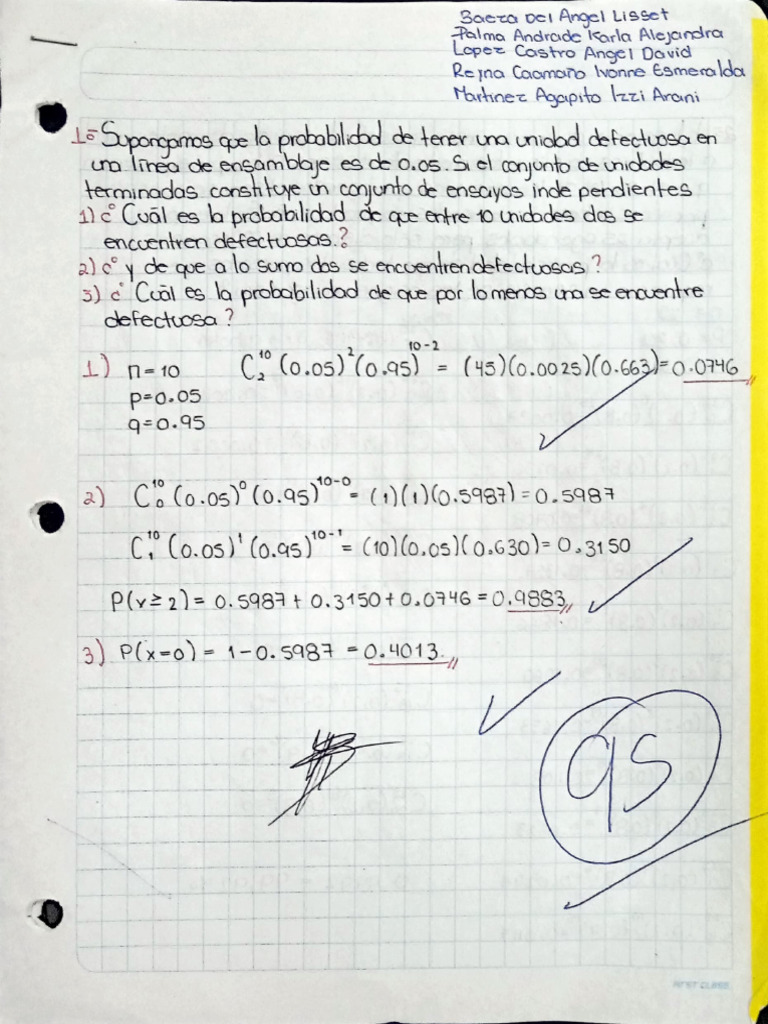 Baeza Del Angel Lisset
Palma Andrade Karla Alejandra
Lopez Castro Angel David
Reyna Caamaño Ivonne Esmeralda
Martinez Agapito Izzi Arani
1.- Supongamos que la probabilidad de tener una unidad defectuosa en
una línea de ensamblaje es de 0.05. Si el conjunto de unidades
terminadas constituye un conjunto de ensayos independientes
1) ¿Cuál es la probabilidad de que entre 10 unidades dos se
encuentren defectuosas.?
2) ¿ y de que a lo sumo dos se encuentren defectuosas?
3) ¿ Cuál es la probabilidad de que por lo menos una se encuentre
defectuosa?
1) n=10 C₂¹⁰ (0.05)² (0.95)¹⁰⁻² = (45)(0.0025)(0.663)=0.0746
p=0.05
q=0.95
2) C₀¹⁰ (0.05)⁰ (0.95)¹⁰⁻⁰ = (1)(1)(0.5987)=0.5987
C₁¹⁰ (0.05)¹ (0.95)¹⁰⁻¹ = (10)(0.05)(0.630)=0.3150
P(x≥2) = 0.5987+0.3150+0.0746=0.9883
3) P(x=0) = 1-0.5987 =0.4013
95
FIRST CLASS